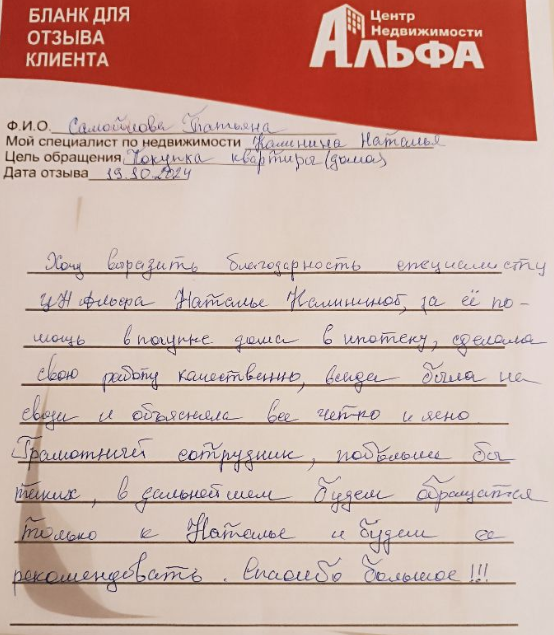 БЛАНК ДЛЯ
ОТЗЫВА
КЛИЕНТА
Центр
Недвижимости
АЛЬФА
Ф.И.О. Самойлова Татьяна
Мой специалист по недвижимости Калинина Наталья
Цель обращения Покупка квартиры (дома)
Дата отзыва 19.10.2024
Хочу выразить благодарность специалисту
ЦН Альфа Наталье Калининой, за её по-
мощь в покупке дома в ипотеку, сделала
свою работу качественно, всегда была на
связи и объясняла все четко и ясно
Грамотный сотрудник, побольше бы
таких, в дальнейшем будем обращатся
только к Наталье и будем ее
рекомендовать. Спасибо большое!!!